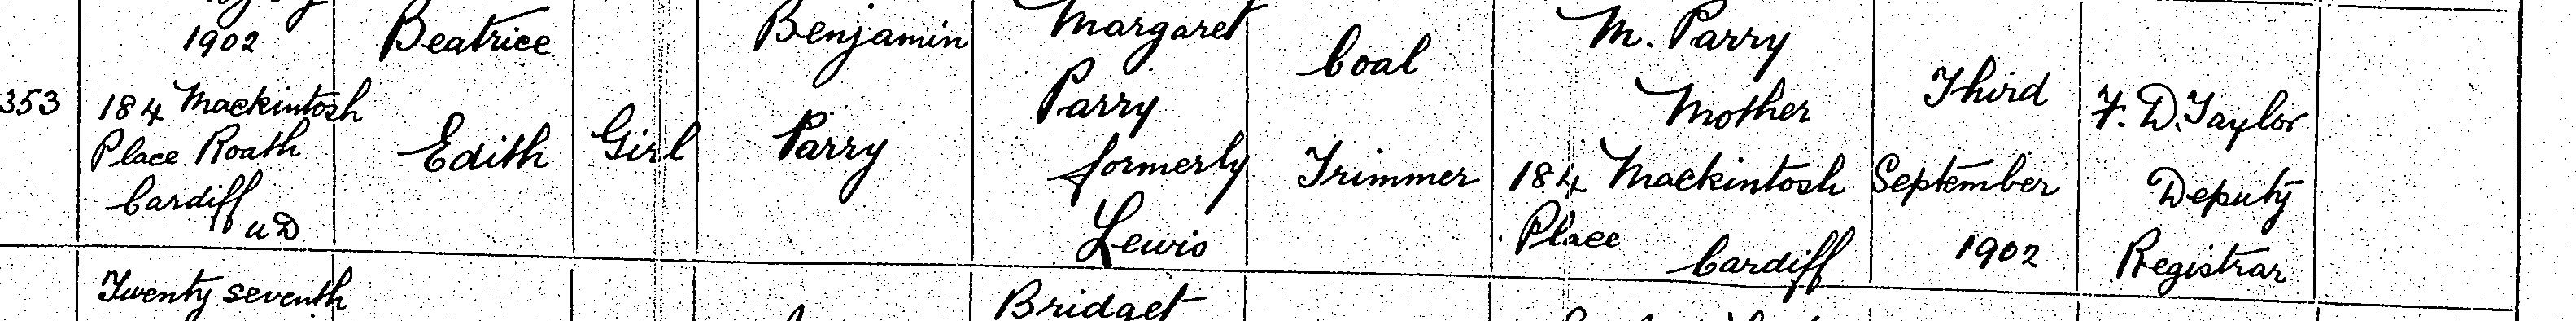 1902
353
184 Mackintosh
Place Roath
Cardiff
UD
Beatrice
Edith
Girl
Benjamin
Parry
Margaret
Parry
formerly
Lewis
Coal
Trimmer
M. Parry
Mother
184 Mackintosh
Place
Cardiff
Third
September
1902
F. D. Taylor
Deputy
Registrar
Twenty seventh
Bridget